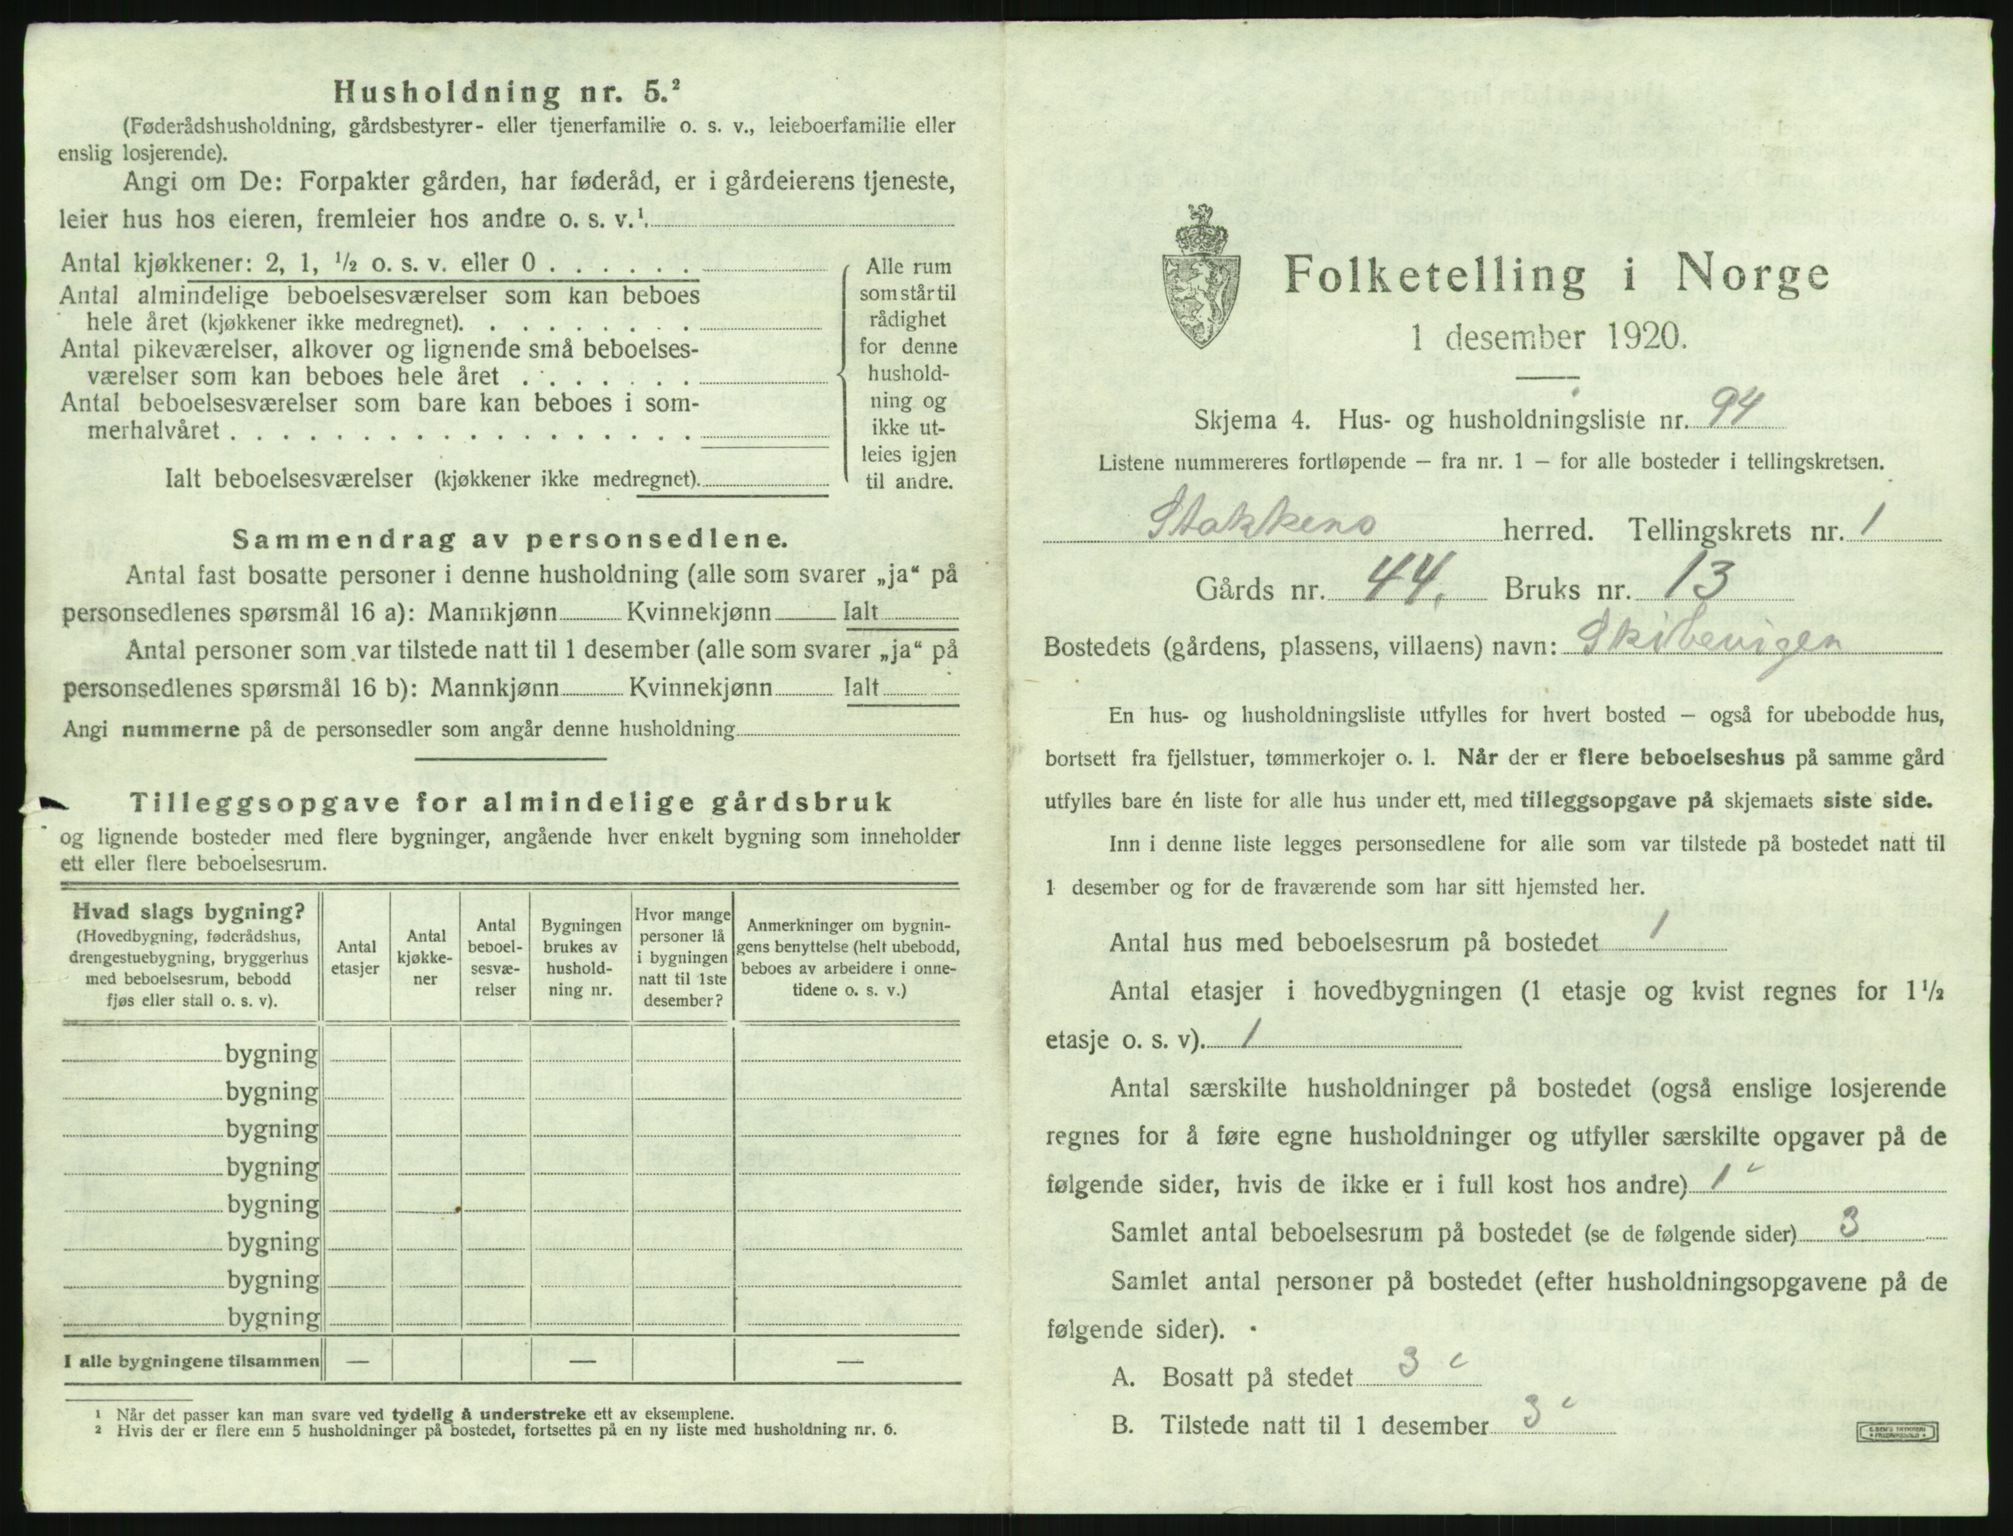 Husholdning nr. 5.²
(Føderådshusholdning, gårdsbestyrer- eller tjenerfamilie o. s. v., leieboerfamilie eller
enslig losjerende).
Angi om De: Forpakter gården, har føderåd, er i gårdeierens tjeneste,
leier hus hos eieren, fremleier hos andre o. s. v.¹.
Antal kjøkkener: 2, 1, ½ o. s. v. eller 0 . . . . . .
Antal almindelige beboelsesværelser som kan beboes
hele året (kjøkkener ikke medregnet). . . . . . . . .
Antal pikeværelser, alkover og lignende små beboelses-
værelser som kan beboes hele året . . . . . . .
Antal beboelsesværelser som bare kan beboes i som-
merhalvåret . . . . . . . . . . . . . . . . . .
Ialt beboelsesværelser (kjøkkener ikke medregnet).
Alle rum
som står til
rådighet
for denne
hushold-
ning og
ikke ut-
leies igjen
til andre.
Sammendrag av personsedlene.
Antal fast bosatte personer i denne husholdning (alle som svarer „ja“ på
personsedlenes spørsmål 16 a): Mannkjønn Kvinnekjønn Ialt
Antal personer som var tilstede natt til 1 desember (alle som svarer „ja“ på
personsedlenes spørsmål 16 b): Mannkjønn Kvinnekjønn Ialt
Angi nummerne på de personsedler som angår denne husholdning
Tilleggsopgave for almindelige gårdsbruk
og lignende bosteder med flere bygninger, angående hver enkelt bygning som inneholder
ett eller flere beboelsesrum.
Hvad slags bygning?
(Hovedbygning, føderådshus,
drengestuebygning, bryggerhus
med beboelsesrum, bebodd
fjøs eller stall o. s. v).
Antal
etasjer
Antal
kjøkke-
ner
Antal
beboel-
sesvæ-
relser
Bygningen
brukes av
hushold-
ning nr.
Hvor mange
personer lå
i bygningen
natt til 1ste
desember?
Anmerkninger om bygnin-
gens benyttelse (helt ubebodd,
beboes av arbeidere i onne-
tidene o. s. v.)
bygning
bygning
bygning
bygning
bygning
bygning
bygning
bygning
I alle bygningene tilsammen — — —
¹ Når det passer kan man svare ved tydelig å understreke ett av eksemplene.
² Hvis der er flere enn 5 husholdninger på bostedet, fortsettes på en ny liste med husholdning nr. 6.
Folketelling i Norge
1 desember 1920.
Skjema 4. Hus- og husholdningsliste nr. 94
Listene nummereres fortløpende — fra nr. 1 — for alle bosteder i tellingskretsen.
Stokkens herred. Tellingskrets nr. 1
Gårds nr. 44. Bruks nr. 13
Bostedets (gårdens, plassens, villaens) navn: Skibevigen
En hus- og husholdningsliste utfylles for hvert bosted — også for ubebodde hus,
bortsett fra fjellstuer, tømmerkojer o. l. Når der er flere beboelseshus på samme gård
utfylles bare én liste for alle hus under ett, med tilleggsopgave på skjemaets siste side.
Inn i denne liste legges personsedlene for alle som var tilstede på bostedet natt til
1 desember og for de fraværende som har sitt hjemsted her.
Antal hus med beboelsesrum på bostedet 1
Antal etasjer i hovedbygningen (1 etasje og kvist regnes for 1½
etasje o. s. v). 1
Antal særskilte husholdninger på bostedet (også enslige losjerende
regnes for å føre egne husholdninger og utfyller særskilte opgaver på de
følgende sider, hvis de ikke er i full kost hos andre) 1
Samlet antal beboelsesrum på bostedet (se de følgende sider) 3
Samlet antal personer på bostedet (efter husholdningsopgavene på de
følgende sider).
A. Bosatt på stedet 3
B. Tilstede natt til 1 desember 3